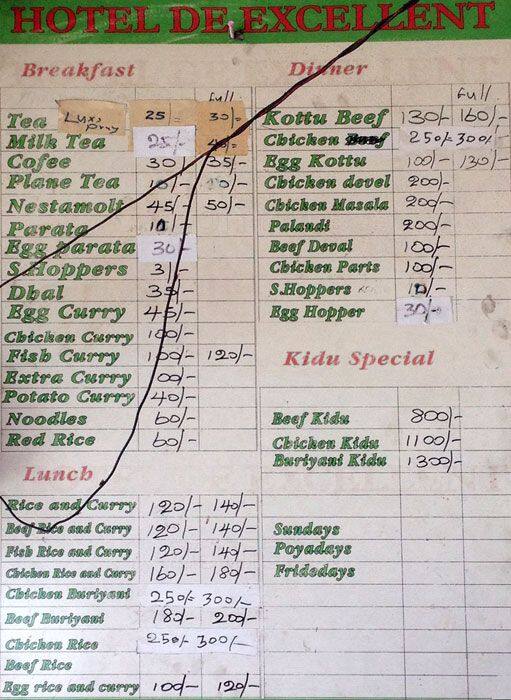 HOTEL DE EXCELLENT
Breakfast
Full
Tea 25/- 30/-
Milk Tea 25/- 40/-
Cofee 30/- 35/-
Plane Tea 10/-
Nestamolt 45/- 50/-
Parata
Egg parata 30/-
S.Hoppers 3/-
Dhal 35/-
Egg Curry 45/-
Chicken Curry 100/-
Fish Curry 100/- 120/-
Extra Curry 00/-
Potato Curry 40/-
Noodles 60/-
Red Rice 60/-
Lunch
Rice and Curry 120/- 140/-
Beef Rice and Curry 120/- 140/-
Fish Rice and Curry 120/- 140/-
Chicken Rice and Curry 160/- 180/-
Chicken Buriyani 250/- 300/-
Beef Buriyani 180/- 200/-
Chicken Rice 250/- 300/-
Beef Rice
Egg rice and curry 100/- 120/-
Dinner
Full
Kottu Beef 130/- 160/-
Chicken 250/- 300/-
Egg Kottu 100/- 130/-
Chicken devel 200/-
Chicken Masala 200/-
Palandi 200/-
Beef Deval 100/-
Chicken Parts 100/-
S.Hoppers
Egg Hopper 30/-
Kidu Special
Beef Kidu 800/-
Chicken Kidu 1100/-
Buriyani Kidu 1300/-
Sundays
Poyadays
Fridedays